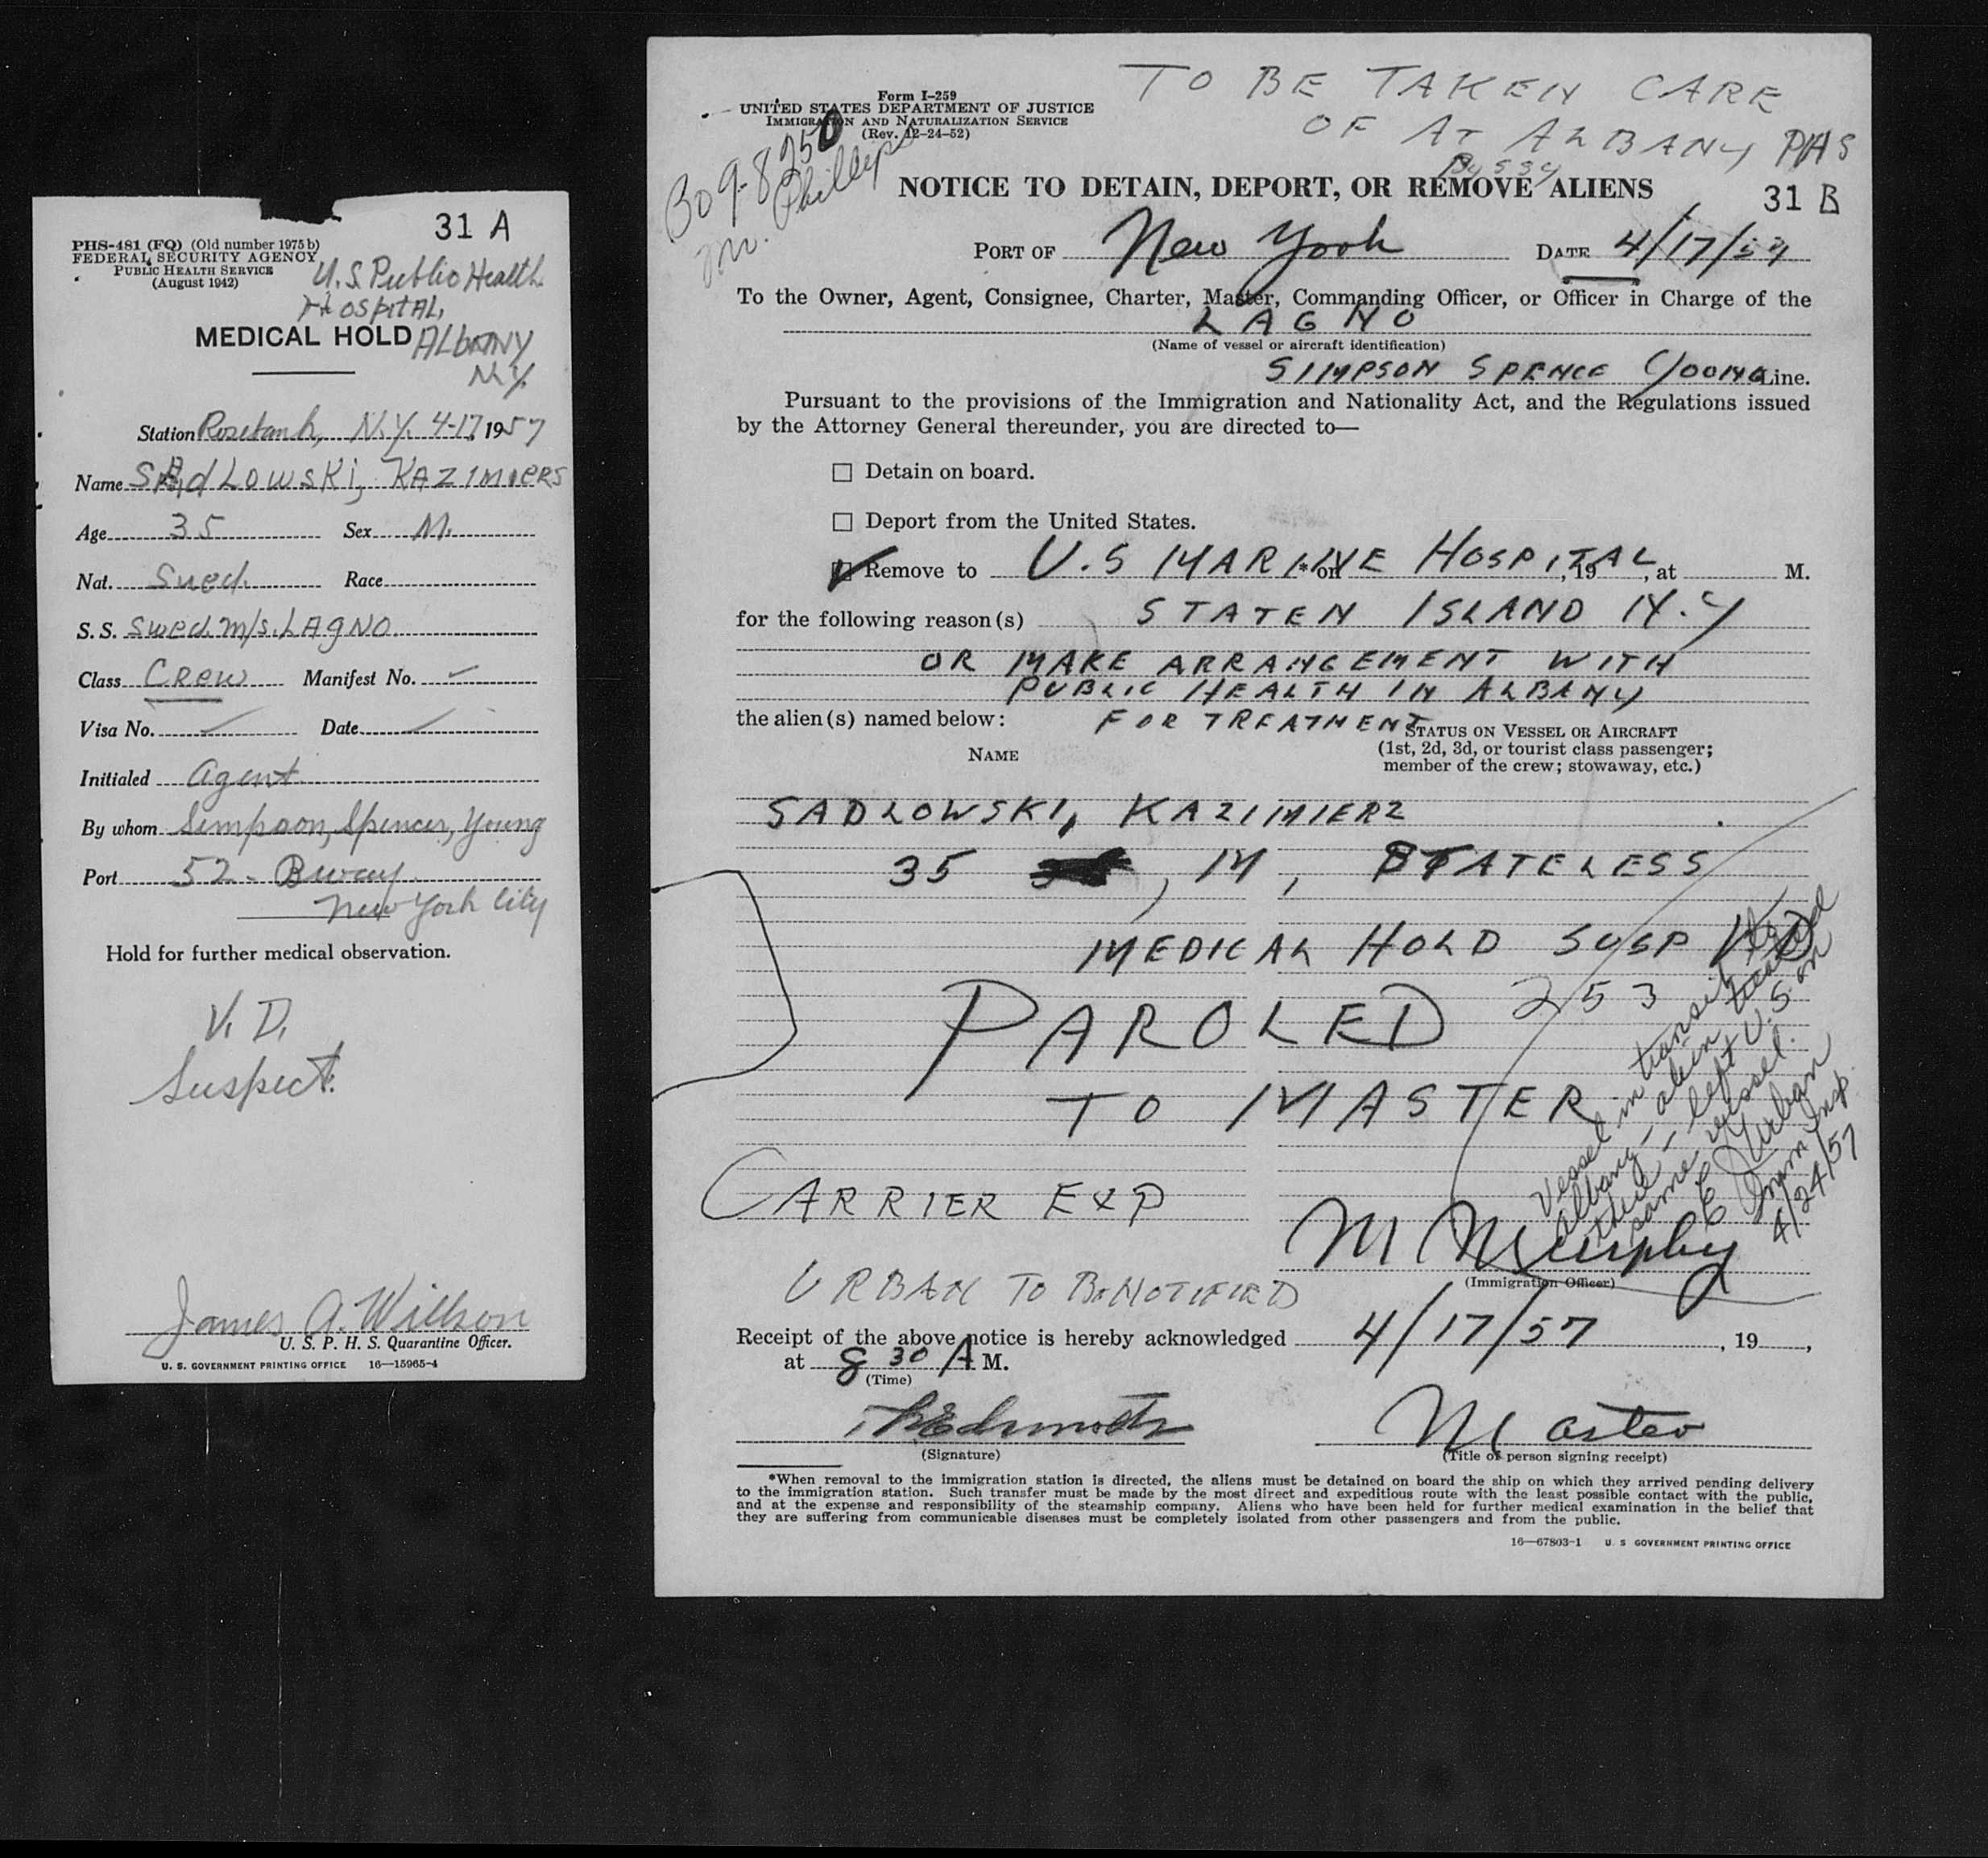 31 A
PHS-481 (FQ) (Old number 1975b)
FEDERAL SECURITY AGENCY
PUBLIC HEALTH SERVICE
(August 1942)
U.S. Public Health
Hospital,
MEDICAL HOLD Albany
N.Y.
Station Rosebank, N.Y. 4-17, 1957
Name SAdLowski, KAZIMIERS
Age 35 Sex M.
Nat. Swed. Race
S. S. Swed. m/s. LAgNO
Class Crew Manifest No. ✓
Visa No. ✓ Date ✓
Initialed Agent
By whom Simpson, Spencer, Young
Port 52 - Bway
New York City
Hold for further medical observation.
V. D.
Suspect.
James A. Willson
U. S. P. H. S. Quarantine Officer.
U. S. GOVERNMENT PRINTING OFFICE 16—15965-4
TO BE TAKEN CARE
OF AT ALBANY PHS
Form I-259
UNITED STATES DEPARTMENT OF JUSTICE
IMMIGRATION AND NATURALIZATION SERVICE
(Rev. 12-24-52)
Bo 9-8250
M. Phillips
NOTICE TO DETAIN, DEPORT, OR REMOVE ALIENS
31 B
PORT OF New York DATE 4/17/57
To the Owner, Agent, Consignee, Charter, Master, Commanding Officer, or Officer in Charge of the
LAGNO
(Name of vessel or aircraft identification)
SIMPSON SPENCE YOUNG Line.
Pursuant to the provisions of the Immigration and Nationality Act, and the Regulations issued
by the Attorney General thereunder, you are directed to—
☐ Detain on board.
☐ Deport from the United States.
☑ Remove to U.S MARINE HOSPITAL * on , 19 , at M.
for the following reason(s) STATEN ISLAND N.Y
OR MAKE ARRANGEMENT WITH
PUBLIC HEALTH IN ALBANY
the alien(s) named below: FOR TREATMENT
NAME
STATUS ON VESSEL OR AIRCRAFT
(1st, 2d, 3d, or tourist class passenger;
member of the crew; stowaway, etc.)
SADLOWSKI, KAZIMIERZ
35 , M , STATELESS
MEDICAL HOLD SUSP VD
PAROLED 253
TO MASTER
CARRIER EXP
Vessel in transit to
Albany - alien treated
there - left U.S. on
same vessel.
E Urban
Imm Insp.
4/24/57
M Murphy
(Immigration Officer)
URBAN TO BE NOTIFIED
Receipt of the above notice is hereby acknowledged 4/17/57 , 19 ,
at 8 30 A M.
(Time)
Master
(Signature)
(Title of person signing receipt)
*When removal to the immigration station is directed, the aliens must be detained on board the ship on which they arrived pending delivery
to the immigration station. Such transfer must be made by the most direct and expeditious route with the least possible contact with the public,
and at the expense and responsibility of the steamship company. Aliens who have been held for further medical examination in the belief that
they are suffering from communicable diseases must be completely isolated from other passengers and from the public.
16—67803-1 U. S GOVERNMENT PRINTING OFFICE